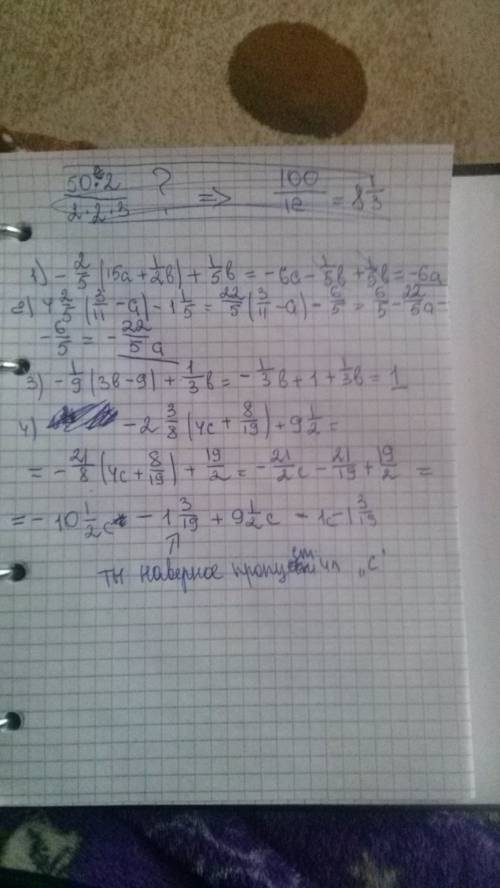 50·2 ? => 100/12 = 8 1/3
2·2·3
1) -2/5 (15a + 1/2 b) + 1/5 b = -6a - 1/5 b + 1/5 b = -6a
2) 4 2/5 (3/11 - a) - 1 1/5 = 22/5 (3/11 - a) - 6/5 = 6/5 - 22/5 a -
- 6/5 = - 22/5 a
3) -1/9 (3b - 9) + 1/3 b = - 1/3 b + 1 + 1/3 b = 1
4) -2 3/8 (4c + 8/19) + 9 1/2 =
= - 21/8 (4c + 8/19) + 19/2 = - 21/2 c - 21/19 + 19/2 =
= - 10 1/2 c - 1 3/19 + 9 1/2 c - 1c - 1 3/19
ты наверное пропустил „c"